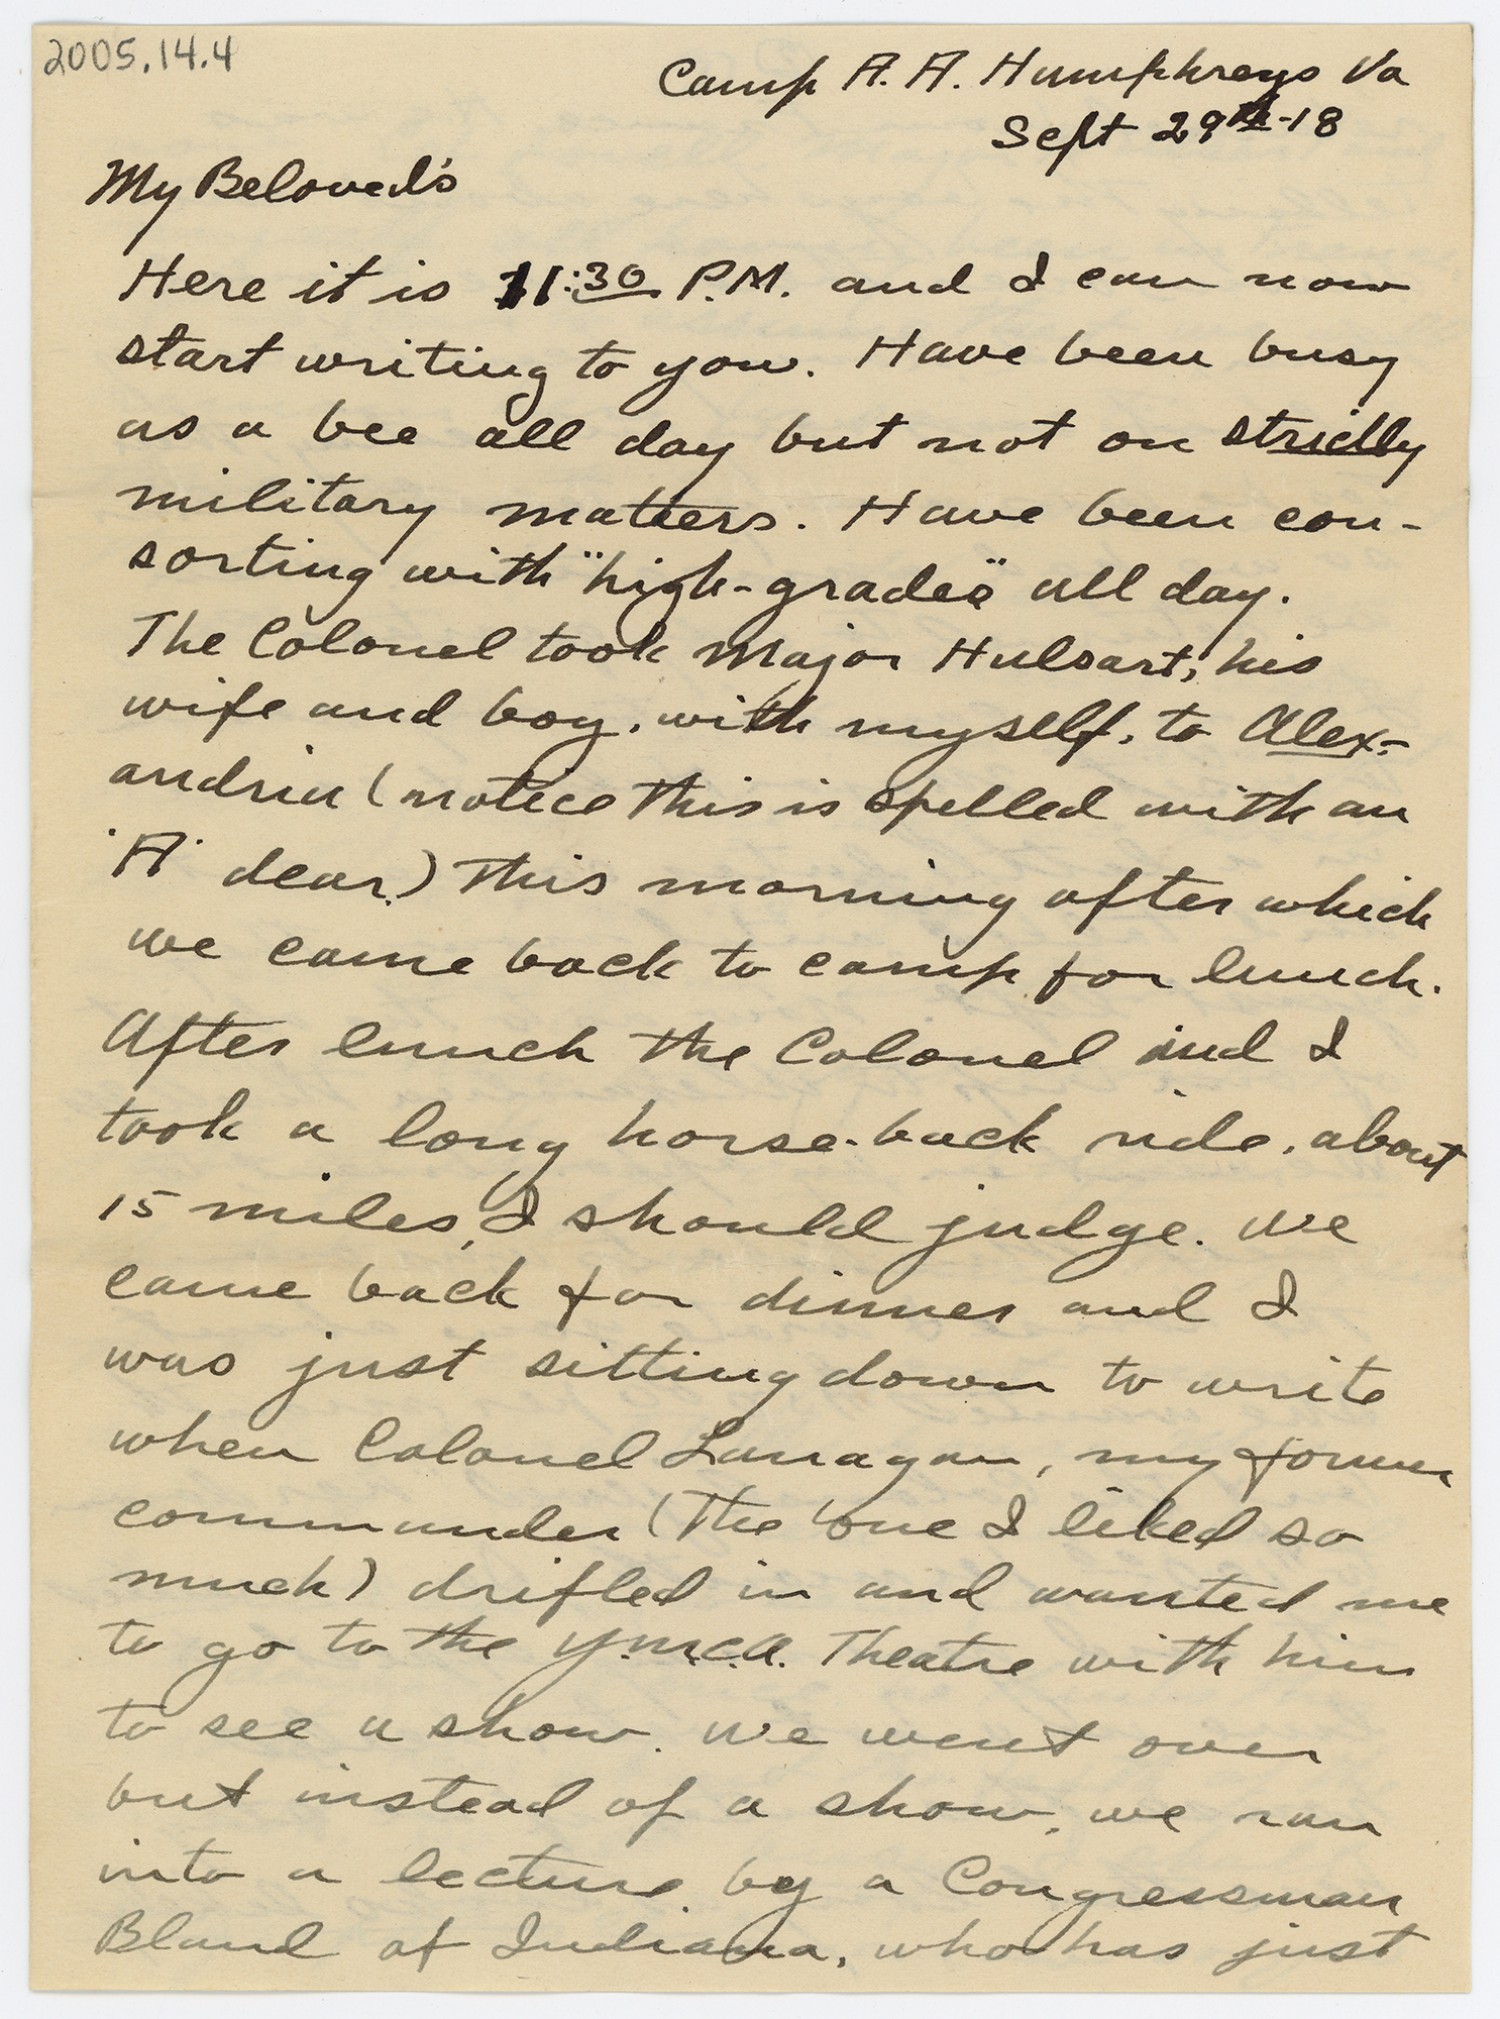 2005.14.4
Camp A. A. Humphreys Va
Sept 29th-18
My Beloved's
Here it is 11:30 P.M. and I can now
start writing to you. Have been busy
as a bee all day but not on strictly
military matters. Have been con-
sorting with "high-grades" all day.
The Colonel took Major Hulsart, his
wife and boy, with myself, to Alex-
andria (notice this is spelled with an
"A" dear.) This morning after which
we came back to camp for lunch.
After lunch the Colonel and I
took a long horse-back ride, about
15 miles, I should judge. We
came back for dinner and I
was just sitting down to write
when Colonel Lanagan, my former
commander (the one I liked so
much) drifted in and wanted me
to go to the Y.M.C.A. Theatre with him
to see a show. We went over
but instead of a show, we ran
into a lecture by a Congressman
Bland of Indiana, who has just